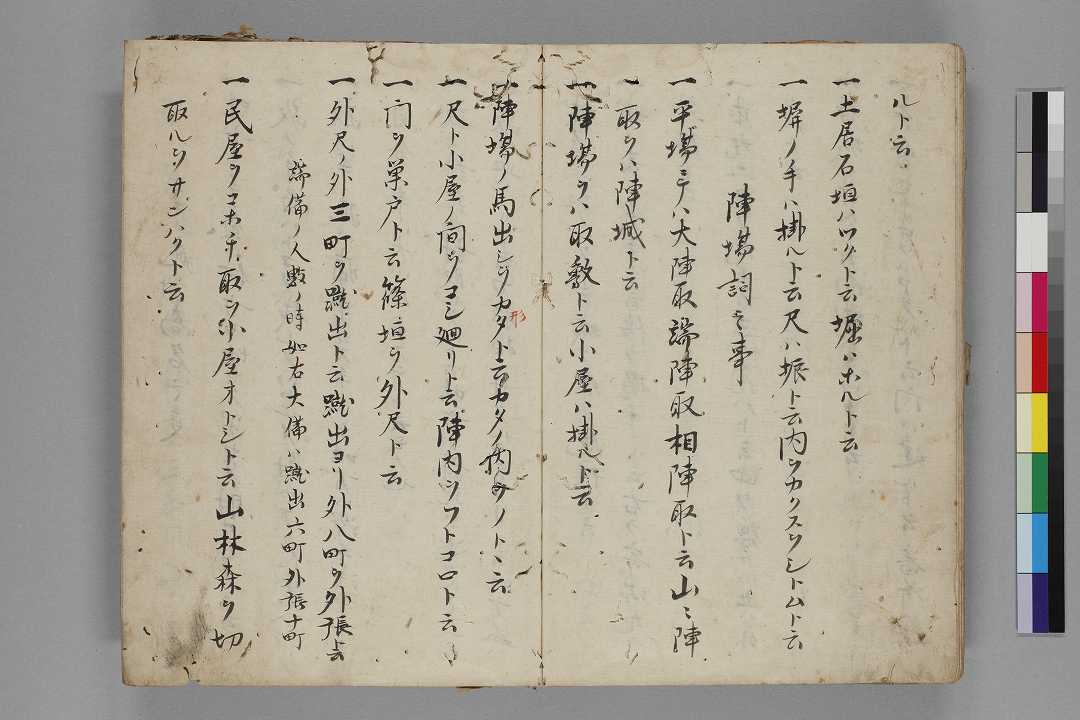 ルト云
一土居石垣ハツクト云堀ハホルト云
一塀ノ手ハ掛ルト云尺ハ振ト云内ヲカクスヲシトムト云
陣場詞之事
一平場ニテハ大陣取諸陣取相陣取ト云山ニ陣
一取ヲハ陣城ト云
一陣場ヲハ取敷ト云小屋ハ掛ルト云
一陣場ノ馬出シヲカタト云カタノ内ヲノト云
形
一尺ト小屋ノ間ヲコシ廻リト云陣内ヲフトコロト云
一門ヲ巣戸ト云篠垣ヲ外尺ト云
一外尺ノ外三町ヲ蹴出ト云蹴出ヨリ外八町ヲ外張ト云
諸備ノ人数ノ時如右大備ハ蹴出六町外張十町
一民屋ヲコホチ取ヲ小屋オトシト云山林森ヲ切
取ルヲサンハクト云